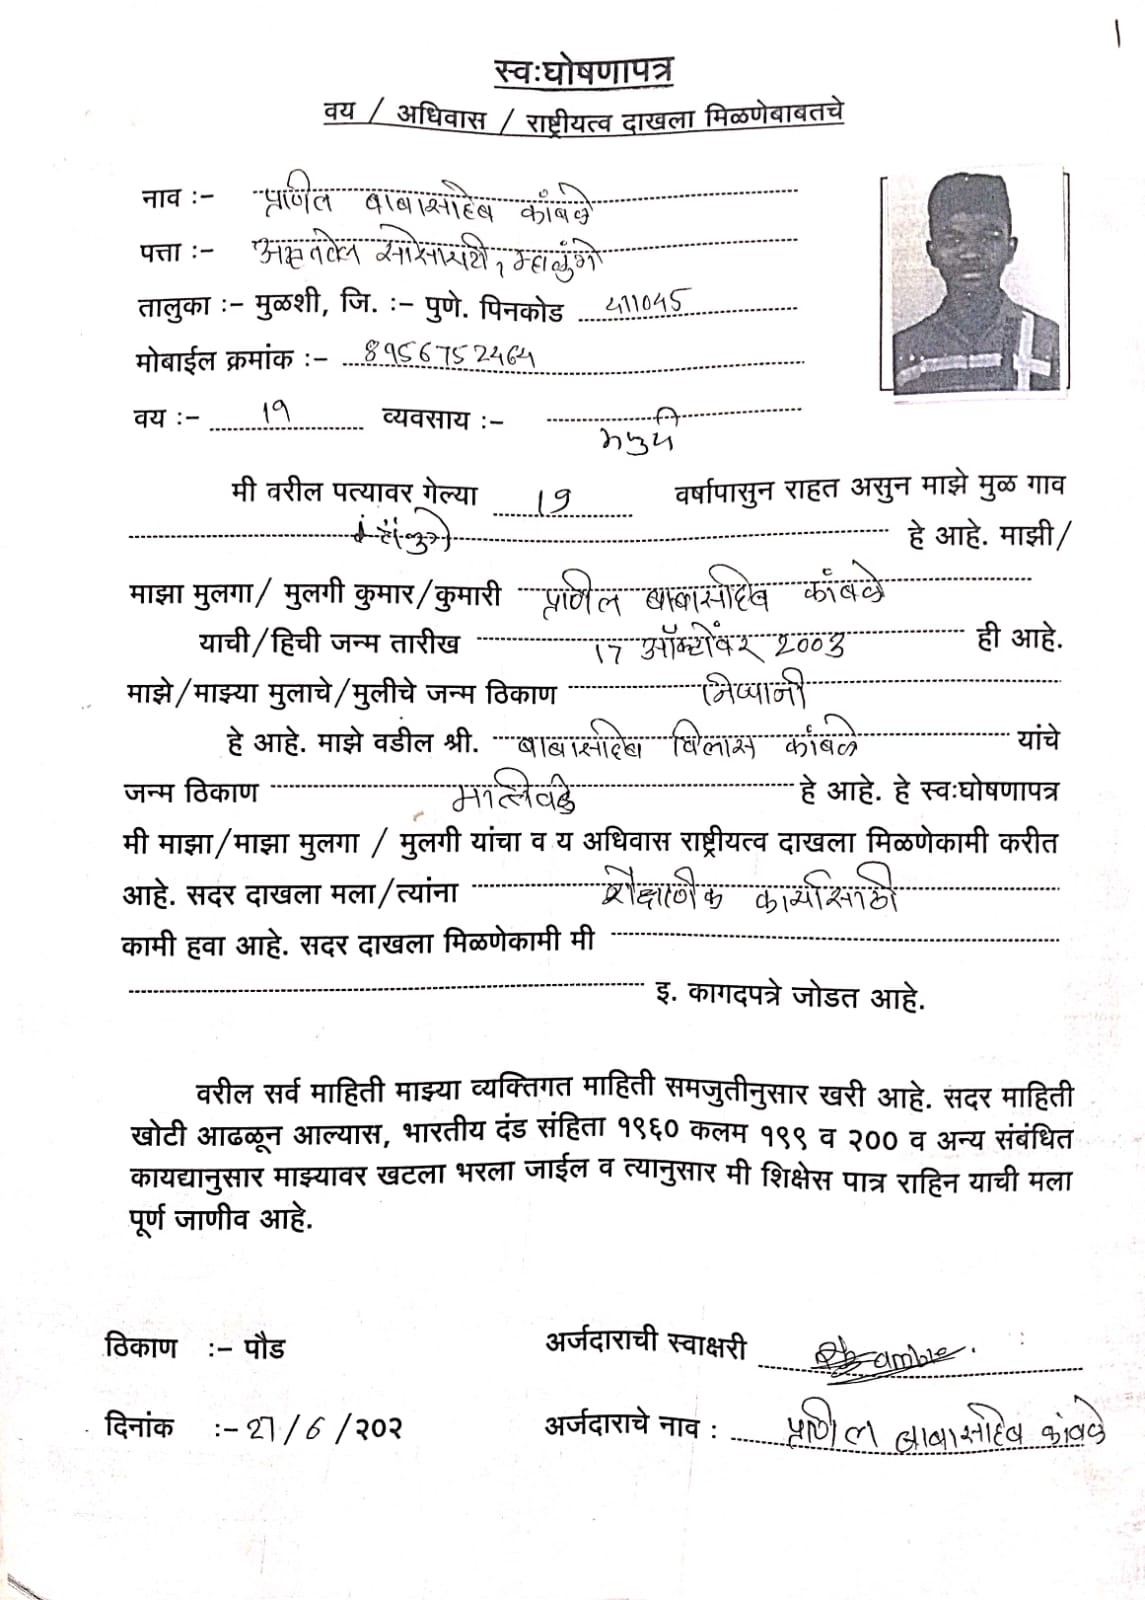 १
स्वःघोषणापत्र
वय / अधिवास / राष्ट्रीयत्व दाखला मिळणेबाबतचे
नाव :- प्रणिल बाबासाहेब कांबळे
पत्ता :- अमृतवेल सोसायटी, म्हाळुंगे
तालुका :- मुळशी, जि. :- पुणे. पिनकोड 411045
मोबाईल क्रमांक :- 8956752464
वय :- 19 व्यवसाय :-
मी वरील पत्यावर गेल्या 19 वर्षापासुन राहत असुन माझे मुळ गाव
हे आहे. माझी/
माझा मुलगा/ मुलगी कुमार/कुमारी प्रणिल बाबासाहेब कांबळे
याची/हिची जन्म तारीख 17 ऑक्टोंबर 2003 ही आहे.
माझे/माझ्या मुलाचे/मुलीचे जन्म ठिकाण निप्पानी
हे आहे. माझे वडील श्री. बाबासाहेब विलास कांबळे यांचे
जन्म ठिकाण हे आहे. हे स्वःघोषणापत्र
मी माझा/माझा मुलगा / मुलगी यांचा व य अधिवास राष्ट्रीयत्व दाखला मिळणेकामी करीत
आहे. सदर दाखला मला/त्यांना शैक्षणिक कार्यासाठी
कामी हवा आहे. सदर दाखला मिळणेकामी मी
इ. कागदपत्रे जोडत आहे.
वरील सर्व माहिती माझ्या व्यक्तिगत माहिती समजुतीनुसार खरी आहे. सदर माहिती
खोटी आढळून आल्यास, भारतीय दंड संहिता १९६० कलम १९९ व २०० व अन्य संबंधित
कायद्यानुसार माझ्यावर खटला भरला जाईल व त्यानुसार मी शिक्षेस पात्र राहिन याची मला
पूर्ण जाणीव आहे.
ठिकाण :- पौड अर्जदाराची स्वाक्षरी
दिनांक :- 27/6/२०२ अर्जदाराचे नाव : प्रणिल बाबासाहेब कांबळे